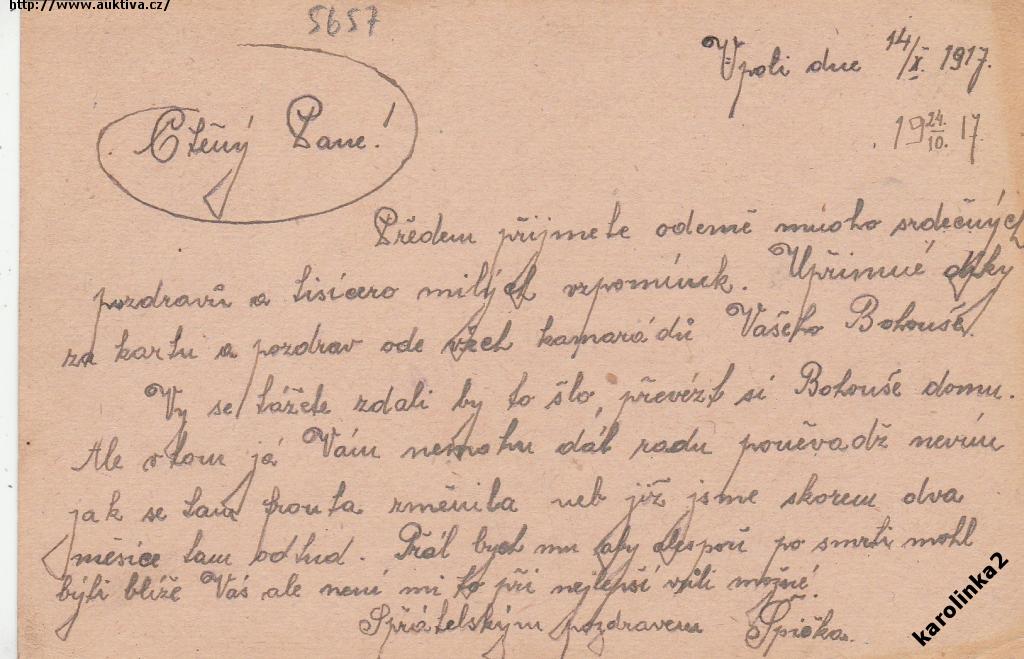 http://www.auktiva.cz/
5657
V poli dne 14/X. 1917.
19 24./10. 17.
Ctěný Pane!
Předem přijmete odemě mnoho srdečných
pozdravů a tisícero milých vzpomínek. Upřímné díky
za kartu a pozdrav ode všech kamarádů Vašeho Bohouše.
Vy se tážete zdali by to šlo, převézt si Bohouše domu.
Ale v tom já Vám nemohu dát radu poněvadž nevím
jak se tam fronta změnila neb již jsme skorem dva
měsíce tam odtud. Přál bych mu aby alespoň po smrti mohl
býti blíže Vás ale není mi to při nejlepší vůli možné!
S přátelským pozdravem Špička.
karolinka2